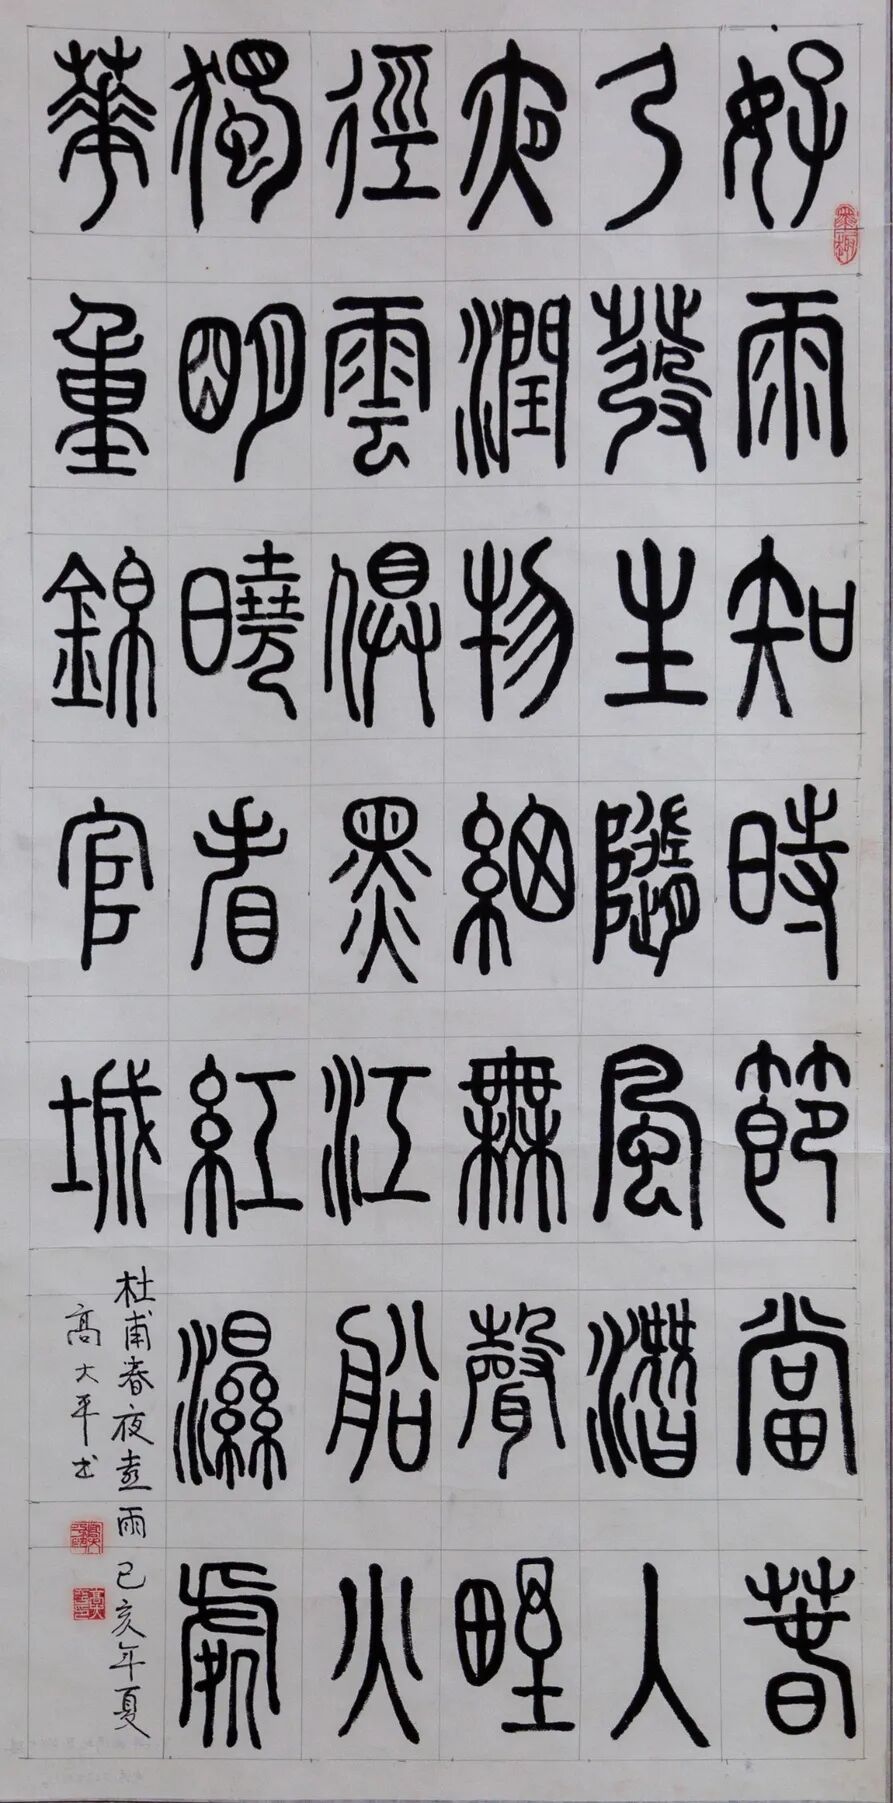 好雨知時節當春
乃發生隨風潛人
夜潤物細無聲野
徑雲俱黑江船火
獨明曉看紅濕處
華重錦官城
杜甫春夜喜雨己亥年夏
高大平书